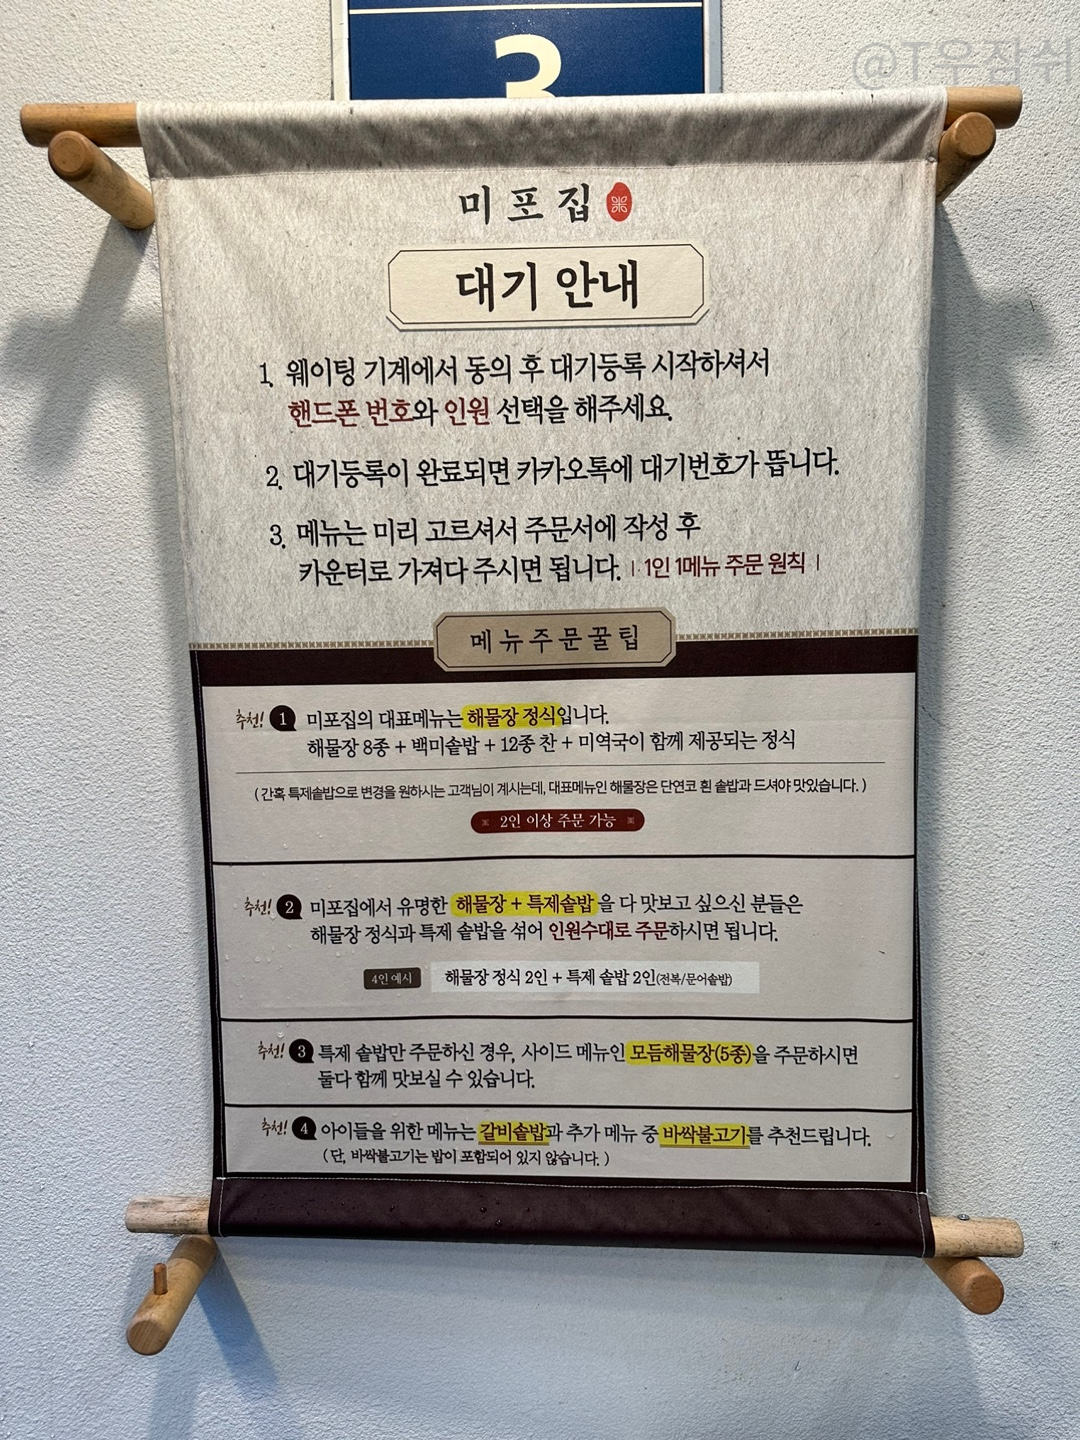 @T우잡쉬
3
미포집
대기 안내
1. 웨이팅 기계에서 동의 후 대기등록 시작하셔서
핸드폰 번호와 인원 선택을 해주세요.
2. 대기등록이 완료되면 카카오톡에 대기번호가 뜹니다.
3. 메뉴는 미리 고르셔서 주문서에 작성 후
카운터로 가져다 주시면 됩니다. | 1인 1메뉴 주문 원칙 |
메뉴주문꿀팁
추천! 1 미포집의 대표메뉴는 해물장 정식입니다.
해물장 8종 + 백미솥밥 + 12종 찬 + 미역국이 함께 제공되는 정식
( 간혹 특제솥밥으로 변경을 원하시는 고객님이 계시는데, 대표메뉴인 해물장은 단연코 흰 솥밥과 드셔야 맛있습니다. )
2인 이상 주문 가능
추천! 2 미포집에서 유명한 해물장 + 특제솥밥을 다 맛보고 싶으신 분들은
해물장 정식과 특제 솥밥을 섞어 인원수대로 주문하시면 됩니다.
4인 예시 해물장 정식 2인 + 특제 솥밥 2인(전복/문어솥밥)
추천! 3 특제 솥밥만 주문하신 경우, 사이드 메뉴인 모듬해물장(5종)을 주문하시면
둘다 함께 맛보실 수 있습니다.
추천! 4 아이들을 위한 메뉴는 갈비솥밥과 추가 메뉴 중 바싹불고기를 추천드립니다.
( 단, 바싹불고기는 밥이 포함되어 있지 않습니다. )